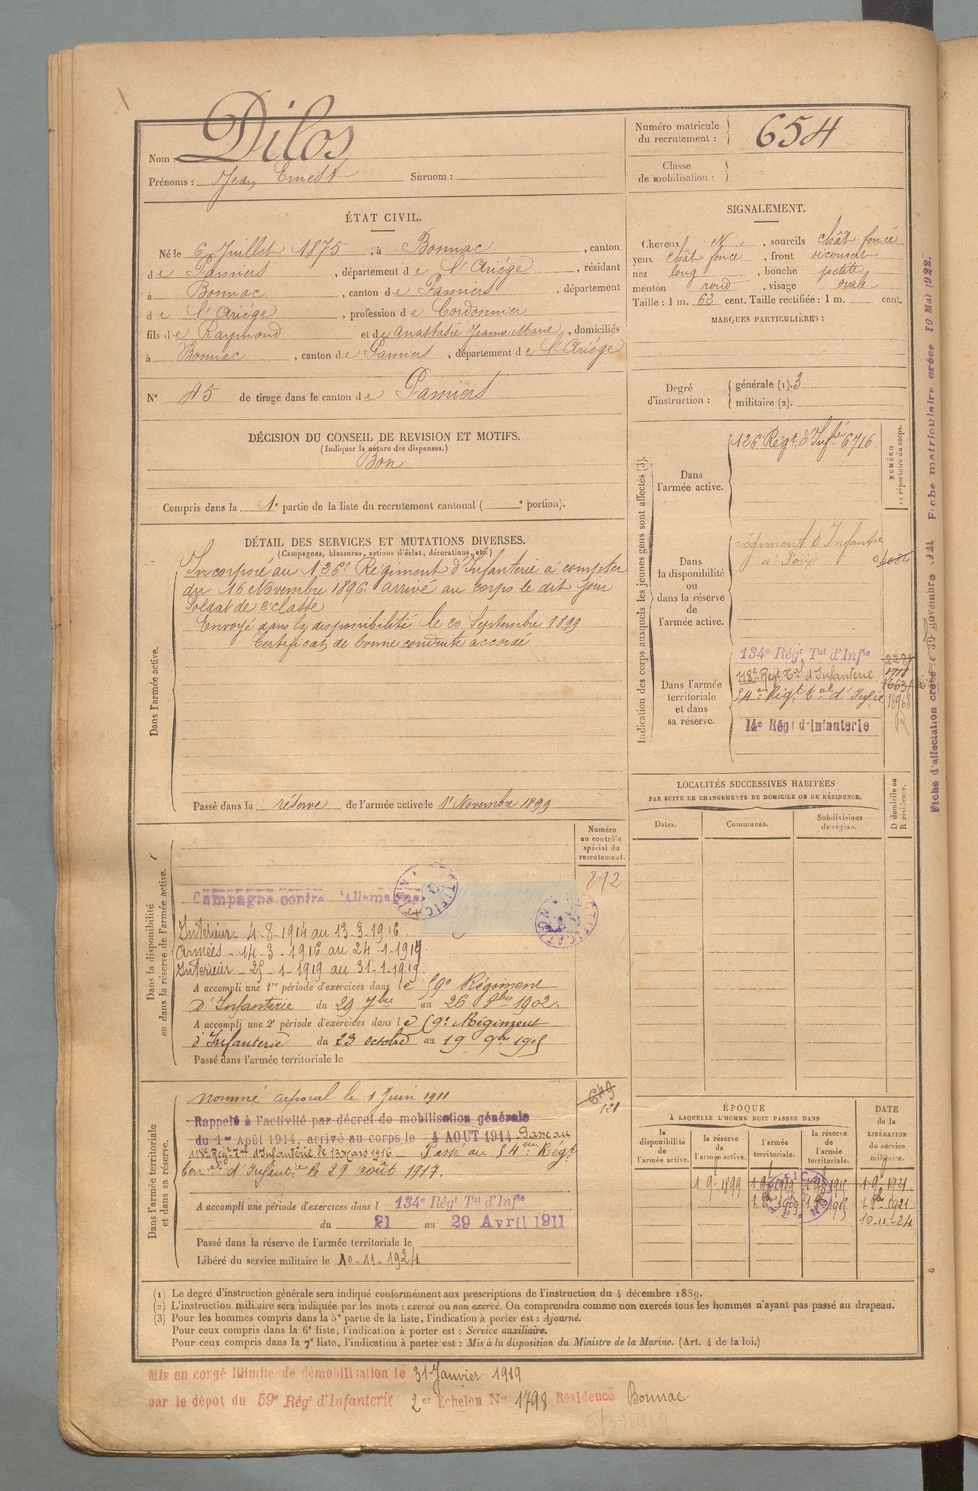 Nom : Dilos
Prénoms : Jean Ernest Surnom :
Numéro matricule du recrutement : 654
Classe de mobilisation :
ÉTAT CIVIL.
Né le 6 Juillet 1875, à Bonnac, canton
de Pamiers, département de l'Ariége, résidant
à Bonnac, canton de Pamiers, département
de l'Ariége, profession de Cordonnier
fils de Raymond et de Anastasie Jeanne Marie, domiciliés
à Bonnac, canton de Pamiers, département de l'Ariége
N° 45 de tirage dans le canton de Pamiers
SIGNALEMENT.
Cheveux, sourcils chât foncé
yeux chât foncé, front découvert
nez long, bouche petite
menton rond, visage ovale
Taille : 1 m. 63 cent. Taille rectifiée : 1 m. cent.
MARQUES PARTICULIÈRES :
Degré d'instruction : générale (1). 3
militaire (2).
DÉCISION DU CONSEIL DE REVISION ET MOTIFS.
(Indiquer la nature des dispenses.)
Bon
Compris dans la 1e partie de la liste du recrutement cantonal ( e portion).
DÉTAIL DES SERVICES ET MUTATIONS DIVERSES.
(Campagnes, blessures, actions d'éclat, décorations, etc.)
Dans l'armée active.
Incorporé au 126e Régiment d'Infanterie à compter
du 16 Novembre 1896 arrivé au corps le dit jour
Soldat de 2e classe
Envoyé dans la disponibilité le 20 Septembre 1899
Certificat de bonne conduite accordé
Passé dans la réserve de l'armée active le 1er Novembre 1899
Indication des corps auxquels les jeunes gens sont affectés (3).
NUMÉRO au répertoire du corps.
Dans l'armée active.
126 Régt d'Infie 6716
Dans la disponibilité ou dans la réserve de l'armée active.
régiment d'Infantie
à Foix
Dans l'armée territoriale et dans sa réserve.
134e Régt Tal d'Infie
118e Régt Tal d'Infanterie
54e Régt Tal d'Infie
14e Régt d'Infanterie
Fiche d'affectation créée le 30 novembre 1921 Fiche matriculaire créée 10 Mai 1922.
LOCALITÉS SUCCESSIVES HABITÉES
PAR SUITE DE CHANGEMENTS DE DOMICILE OU DE RÉSIDENCE.
Dates. Communes. Subdivisions de région. D domicile ou R résidence.
Dans la disponibilité ou dans la réserve de l'armée active.
Numéro au contrôle spécial du recrutement.
892
Campagne contre l'Allemagne
Intérieur - 4-8-1914 au 13-3-1916
Armées - 14-3-1916 au 24-1-1919
Intérieur - 25-1-1919 au 31-1-1919
A accompli une 1re période d'exercices dans le 59e Régiment
d'Infanterie du 29 7bre au 26 8bre 1902.
A accompli une 2e période d'exercices dans le 59e Régiment
d'Infanterie du 23 octobre au 19 9bre 1905
Passé dans l'armée territoriale le
Dans l'armée territoriale et dans sa réserve.
nommé caporal le 1 Juin 1911
649
121
Rappelé à l'activité par décret de mobilisation générale
du 1er Août 1914, arrivé au corps le 4 AOUT 1914 Passé au
118e Régt Tal d'Infanterie le 13 mars 1916 Passé au 54e Régt
d'Infantie le 29 août 1917.
A accompli une période d'exercices dans l 134e Régt Tal d'Infie
du 21 au 29 Avril 1911
Passé dans la réserve de l'armée territoriale le
Libéré du service militaire le 10-11-1924
ÉPOQUE
À LAQUELLE L'HOMME DOIT PASSER DANS
la disponibilité de l'armée active. la réserve de l'armée active. l'armée territoriale. la réserve de l'armée territoriale.
DATE de la LIBÉRATION du service militaire.
1 9bre 1899
10-11-24
(1) Le degré d'instruction générale sera indiqué conformément aux prescriptions de l'instruction du 4 décembre 1889.
(2) L'instruction militaire sera indiquée par les mots : exercé ou non exercé. On comprendra comme non exercés tous les hommes n'ayant pas passé au drapeau.
(3) Pour les hommes compris dans la 5e partie de la liste, l'indication à porter est : Ajourné.
Pour ceux compris dans la 6e liste, l'indication à porter est : Service auxiliaire.
Pour ceux compris dans la 7e liste, l'indication à porter est : Mis à la disposition du Ministre de la Marine. (Art. 4 de la loi.)
Mis en congé illimité de démobilisation le 31 Janvier 1919
par le dépot du 59e Régt d'Infanterie 2e Echelon N° 1798 Résidence Bonnac